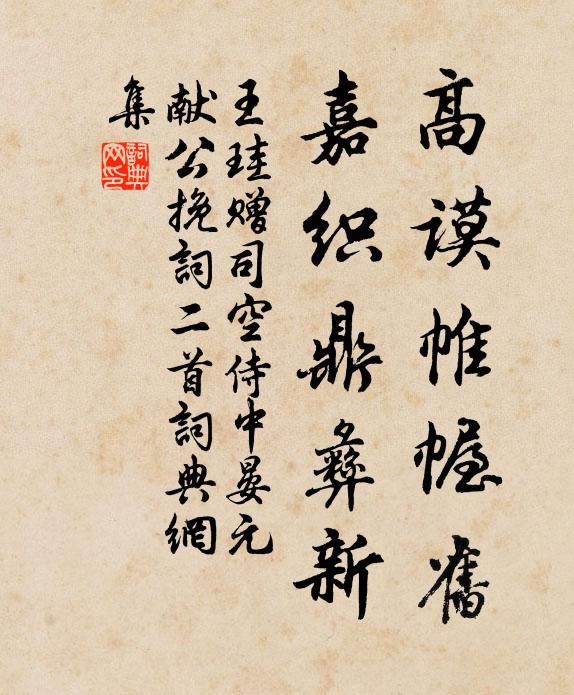 高谟帷幄舊
嘉织鼎彝新
王珪赠司空侍中晏元
献公挽詞二首詞典網
集
詞典网印